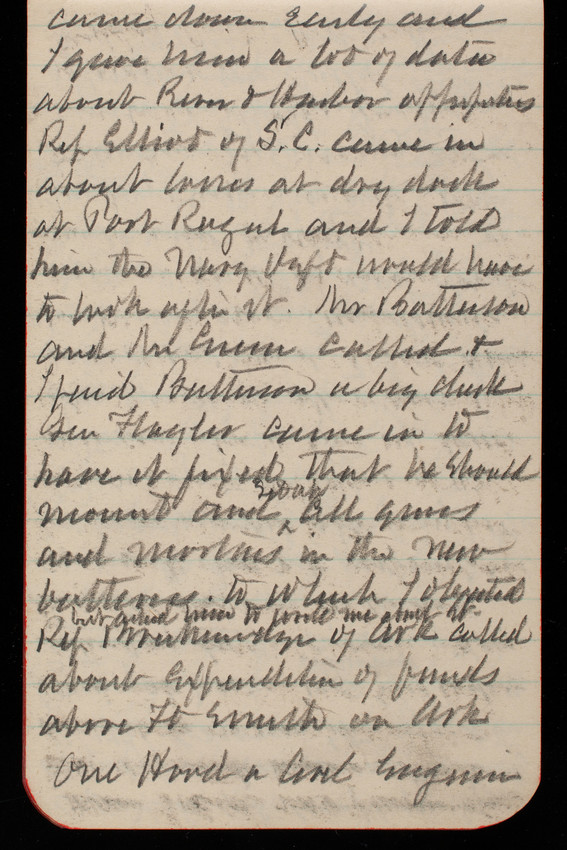 came down Early and
I gave him a lot of data
about River & Harbor
Rep Elliot of S. C. came in
about lines at dry dock
at Port Royal and I told
him the Navy Dept would have
to look after it. Mr Batterson
and Mr called &
I paid Batterson a big check
Gen Flagler came in to
have it fixed that he should
mount and all guns
and mortars in the new
batteries. to which I objected
but asked him to write me about it
Rep Breckenridge of Ark called
about Expenditure of funds
above Ft Smith on Ark
One Hood a Civil Engineer